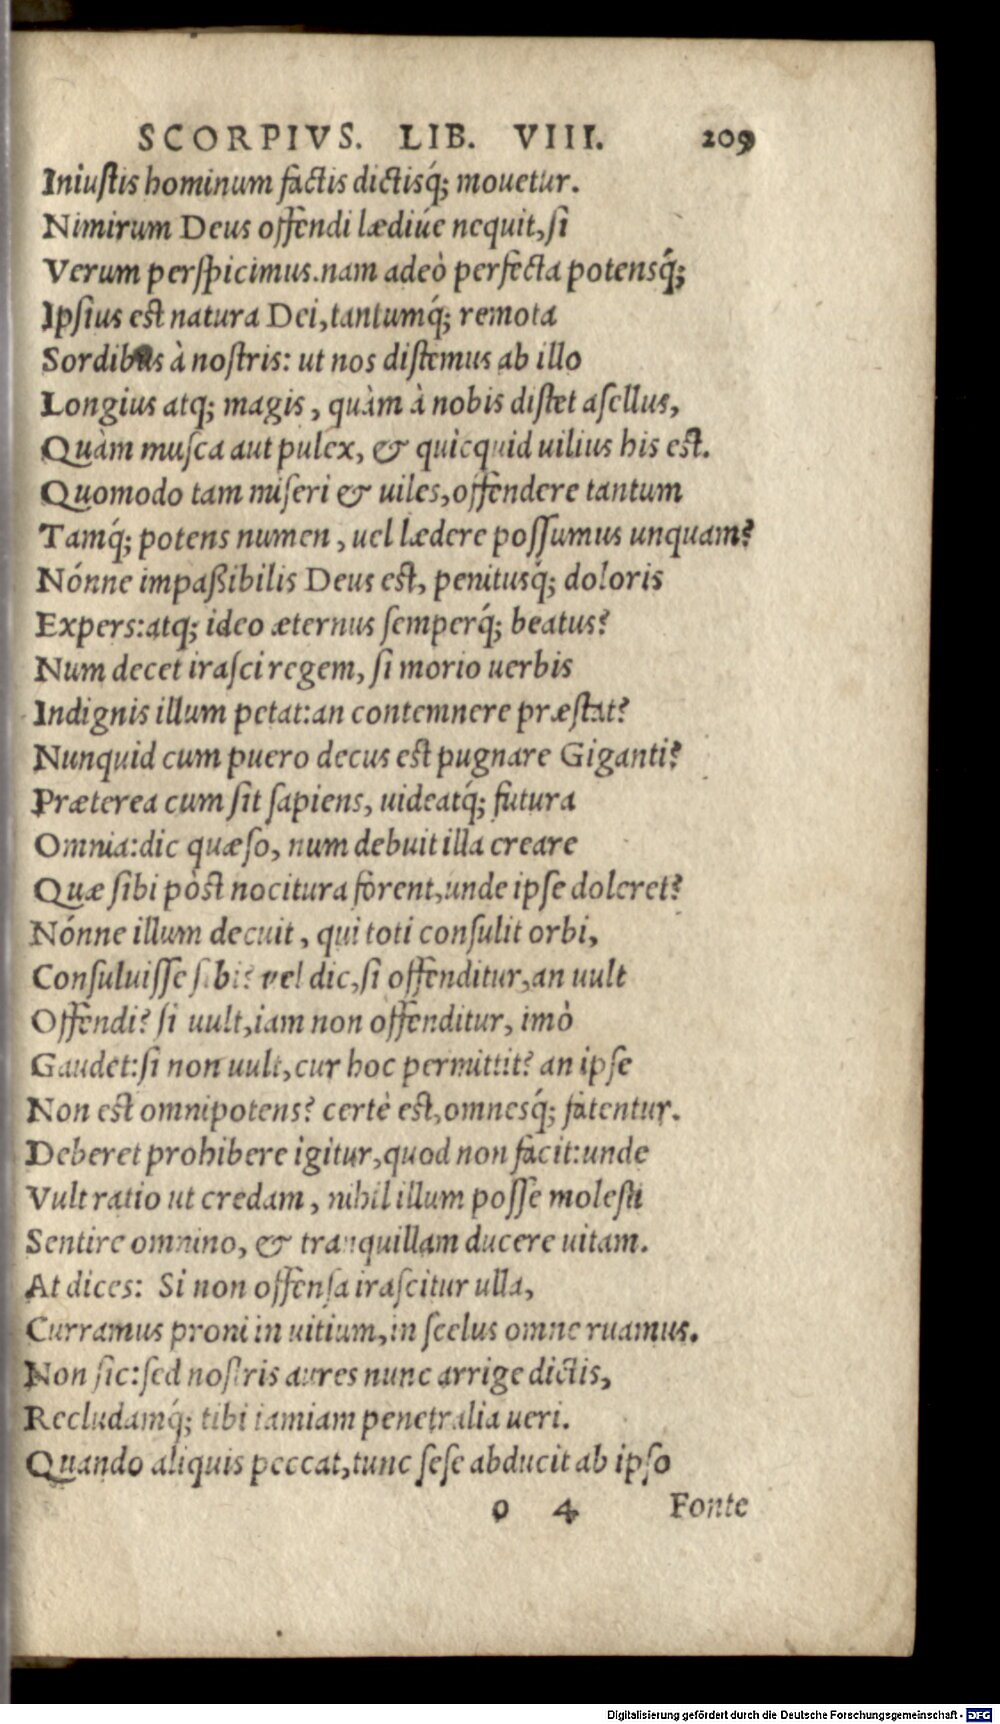 SCORPIVS. LIB. VIII. 209
Iniustis hominum factis dictisq́; mouetur.
Nimirum Deus offendi lædiúe nequit, si
Verum perspicimus. nam adeò perfecta potensq́;
Ipsius est natura Dei, tantumq́; remota
Sordibus à nostris: ut nos distemus ab illo
Longius atq; magis, quàm à nobis distet asellus,
Quàm musca aut pulex, & quicquid uilius his est.
Quomodo tam miseri & uiles, offendere tantum
Tamq́; potens numen, uel lædere possumus unquam?
Nónne impaßibilis Deus est, penitusq́; doloris
Expers: atq; ideo æternus semperq́; beatus?
Num decet irasci regem, si morio uerbis
Indignis illum petat: an contemnere præstat?
Nunquid cum puero decus est pugnare Giganti?
Præterea cum sit sapiens, uideatq́; futura
Omnia: dic quæso, num debuit illa creare
Quæ sibi pòst nocitura forent, unde ipse doleret?
Nónne illum decuit, qui toti consulit orbi,
Consuluisse sibi? vel dic, si offenditur, an uult
Offendi? si uult, iam non offenditur, imò
Gaudet: si non uult, cur hoc permittit? an ipse
Non est omnipotens? certè est, omnesq́; fatentur.
Deberet prohibere igitur, quod non facit: unde
Vult ratio ut credam, nihil illum posse molesti
Sentire omnino, & tranquillam ducere uitam.
At dices: Si non offensa irascitur ulla,
Curramus proni in uitium, in scelus omne ruamus.
Non sic: sed nostris aures nunc arrige dictis,
Recludamq́; tibi iamiam penetralia ueri.
Quando aliquis peccat, tunc sese abducit ab ipso
o 4 Fonte
Digitalisierung gefördert durch die Deutsche Forschungsgemeinschaft - DFG